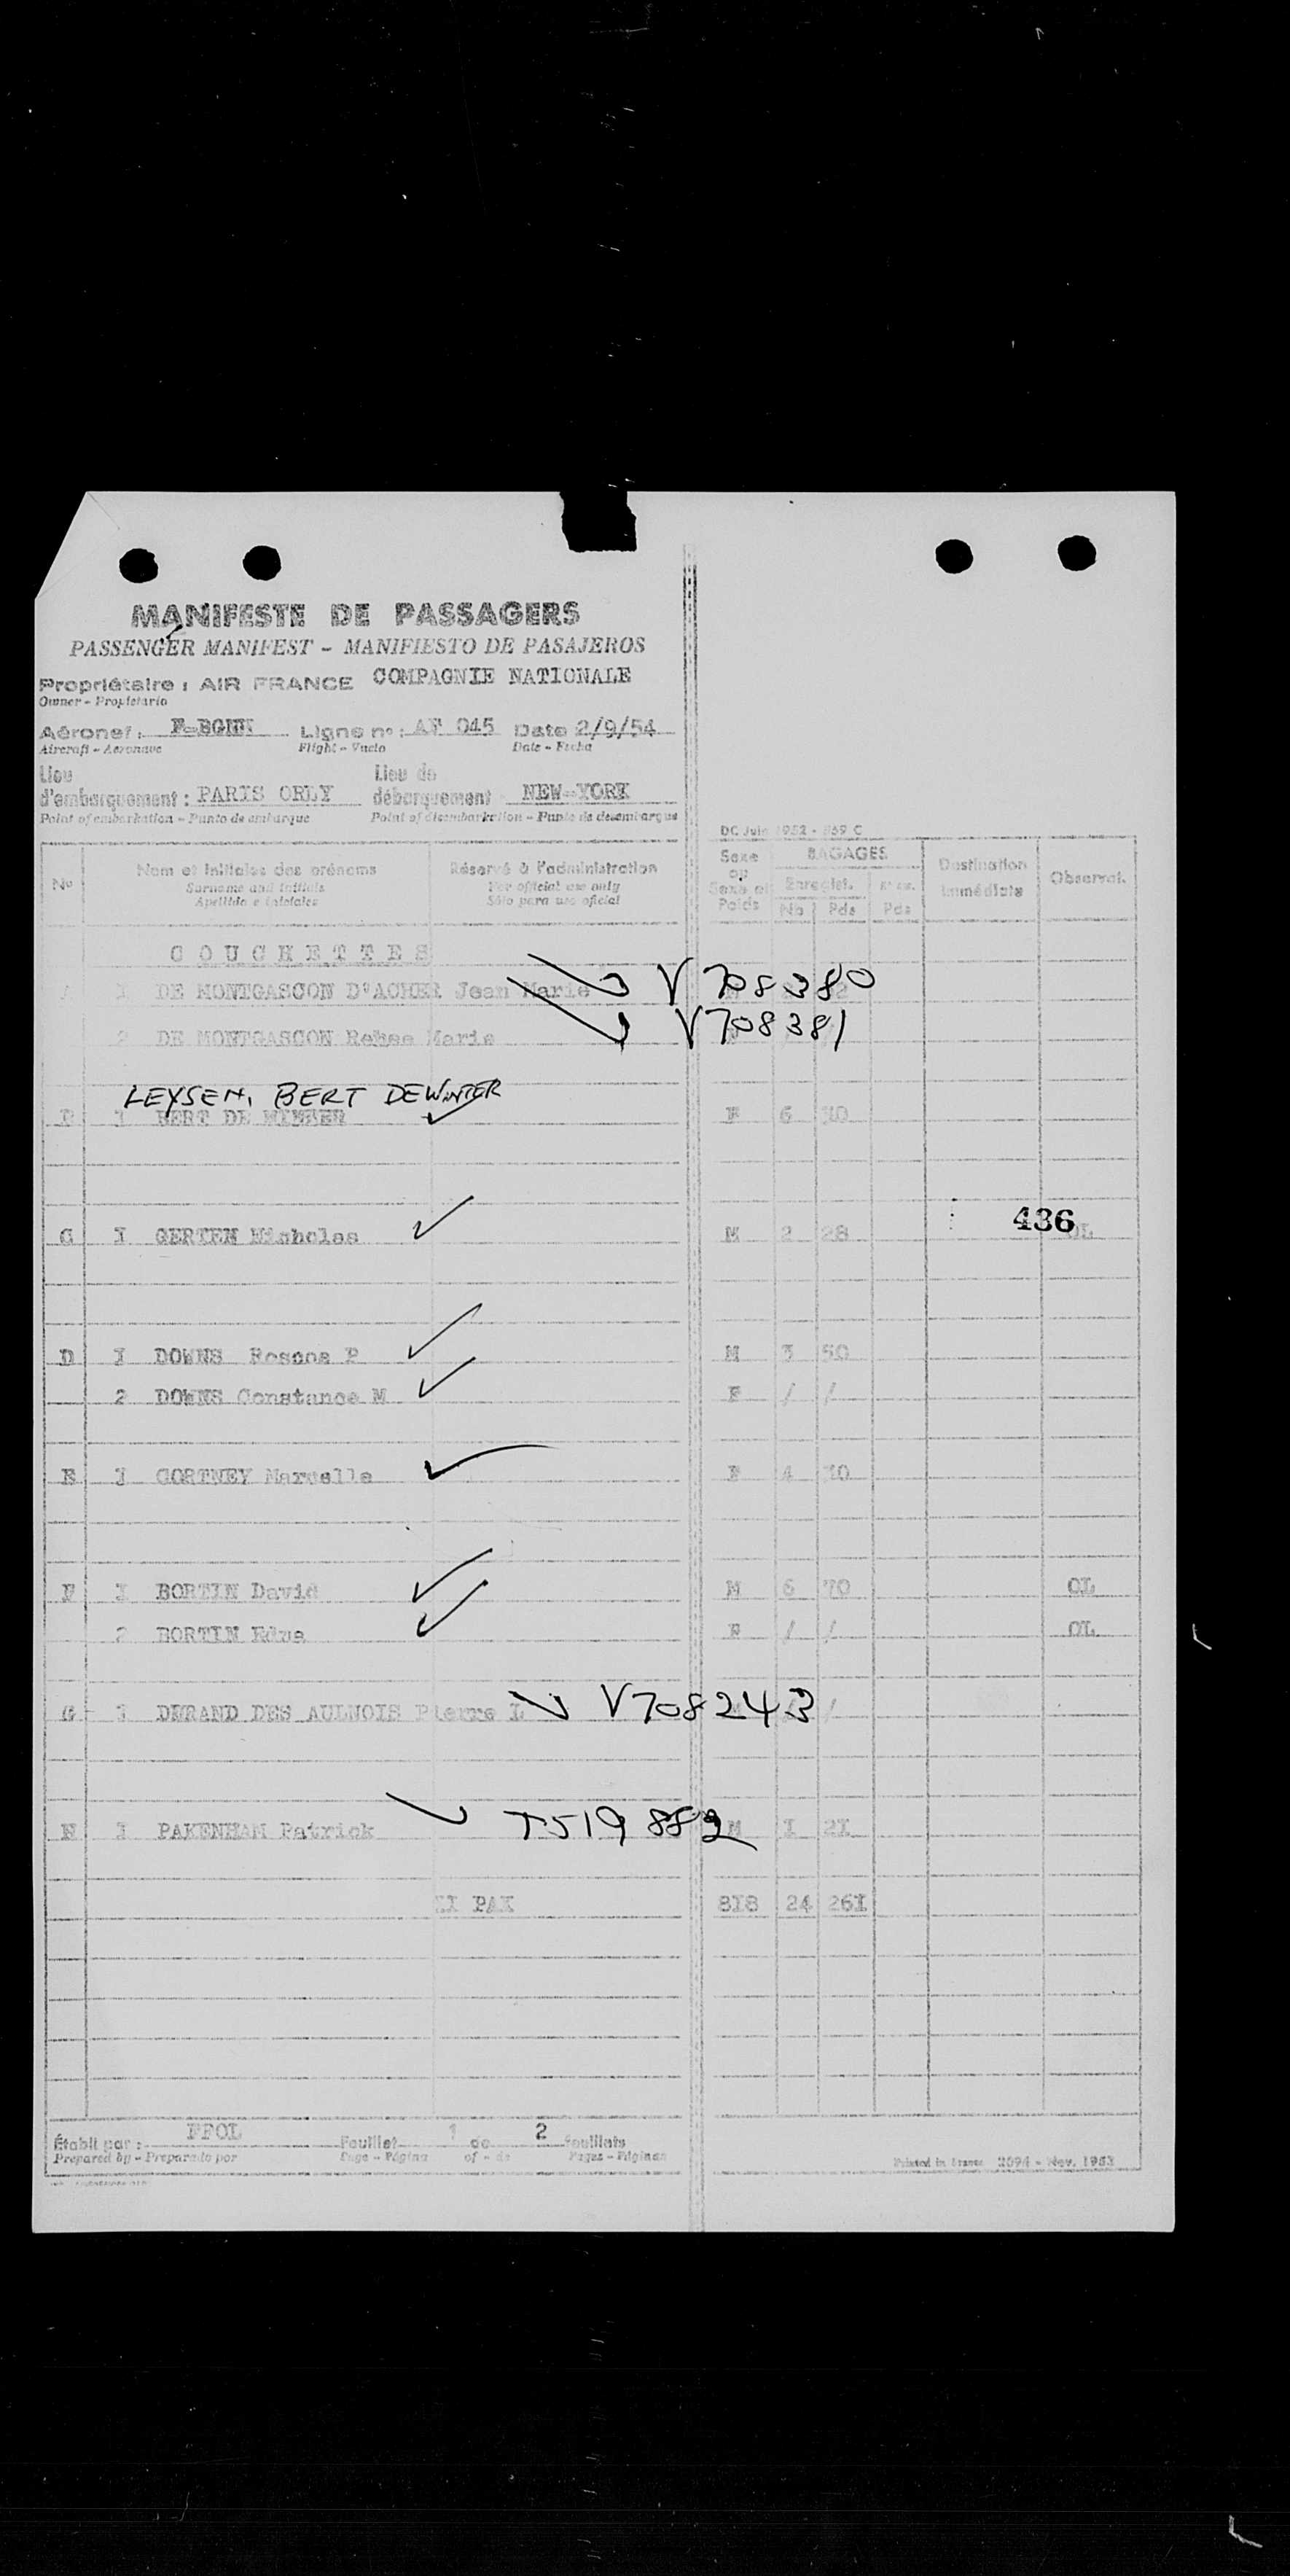 MANIFESTE DE PASSAGERS
PASSENGER MANIFEST - MANIFIESTO DE PASAJEROS
Propriétaire : AIR FRANCE COMPAGNIE NATIONALE
Owner - Propietario
Aéronef : Ligne n° : AF 045 Date 2/9/54
Aircraft - Aeronave Flight - Vuelo Date - Fecha
Lieu d'embarquement : PARIS ORLY Lieu de débarquement NEW-YORK
Point of embarkation - Punto de embarque Point of disembarkation - Punto de desembarque
DC Juin 1952 - 859 C
N° Nom et initiales des prénoms Réservé à l'administration Sexe ou Sexe et Poids BAGAGES Destination immédiate Observat.
Surname and initials For official use only Enregist.
Apellido e iniciales Sólo para uso oficial Nb Pds Pds
COUCHETTES
1 DE MONTGASCON D'ACHER Jean Marie V 708380
2 DE MONTGASCON Marie V708381
LEYSEN, BERT DEWINTER
1 BERT DE F 6 70
436
I GERTEN Nicholas M 2 28 OL
D I DOWNS Roscoe P M 3 50
2 DOWNS Constance M F / /
E I CORTNEY Marcelle F 4 70
F I BORTIN David M 6 70 OL
2 BORTIN Edna F / / OL
G I DURAND DES AULNOIS Pierre L V708243 /
H I PAKENHAM Patrick T519882 M I 2I
II PAX 8I8 24 26I
Établi par : FFOL Feuillet 1 de 2 feuillets
Prepared by - Preparado por Page - Página of - de Pages - Páginas
Printed in France 2094 - Nov. 1953